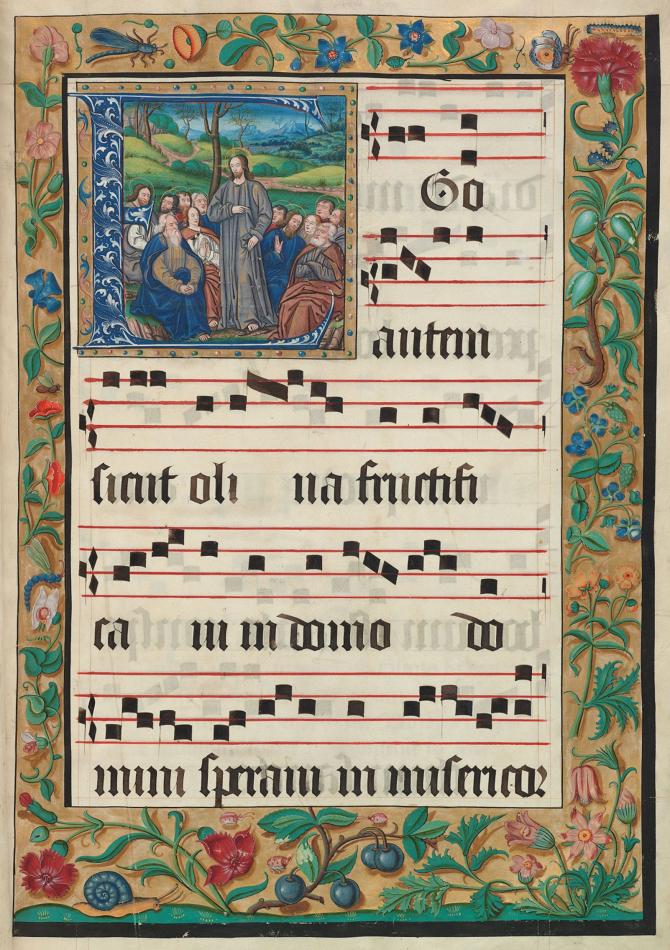 EGo
autem
sicut oli ua fructifi
ca ui in domo do
mini speraui in misericor